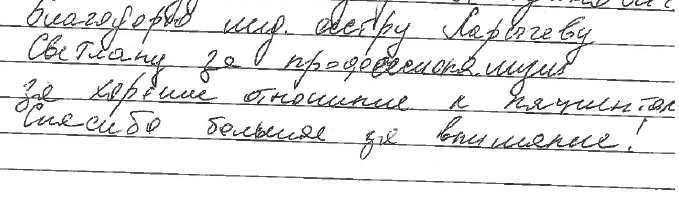 Благодарю мед. сестру Ларычеву
Светлану за профессионализм
за хорошие отношение к пациентам
Спасибо большое за внимание!